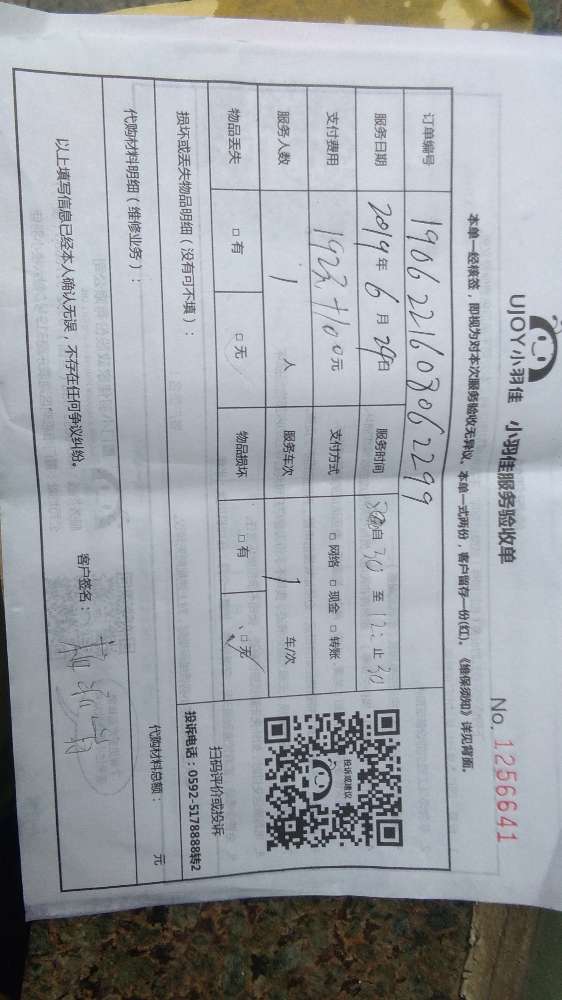 UJOY小羽佳 小羽佳服务验收单
No. 1256641
本单一经核签，即视为对本次服务验收无异议。本单一式两份，客户留存一份(红)。《维保须知》详见背面。
订单编号 1906221608062299
服务日期 2019年 6月 29日 服务时间 自 30 至 12: 止 30
支付费用 1923+100元 支付方式 □ 网络 □ 现金 □ 转账
服务人数 1 人 服务车次 1 车/次
物品丢失 □ 有 □ 无 物品损坏 □ 有 □ 无
投诉或建议
扫码评价或投诉
投诉电话：0592-5178888转2
损坏或丢失物品明细（没有可不填）：
代购材料明细（维修业务）：
代购材料总额： 元
以上填写信息已经本人确认无误，不存在任何争议纠纷。 客户签名：